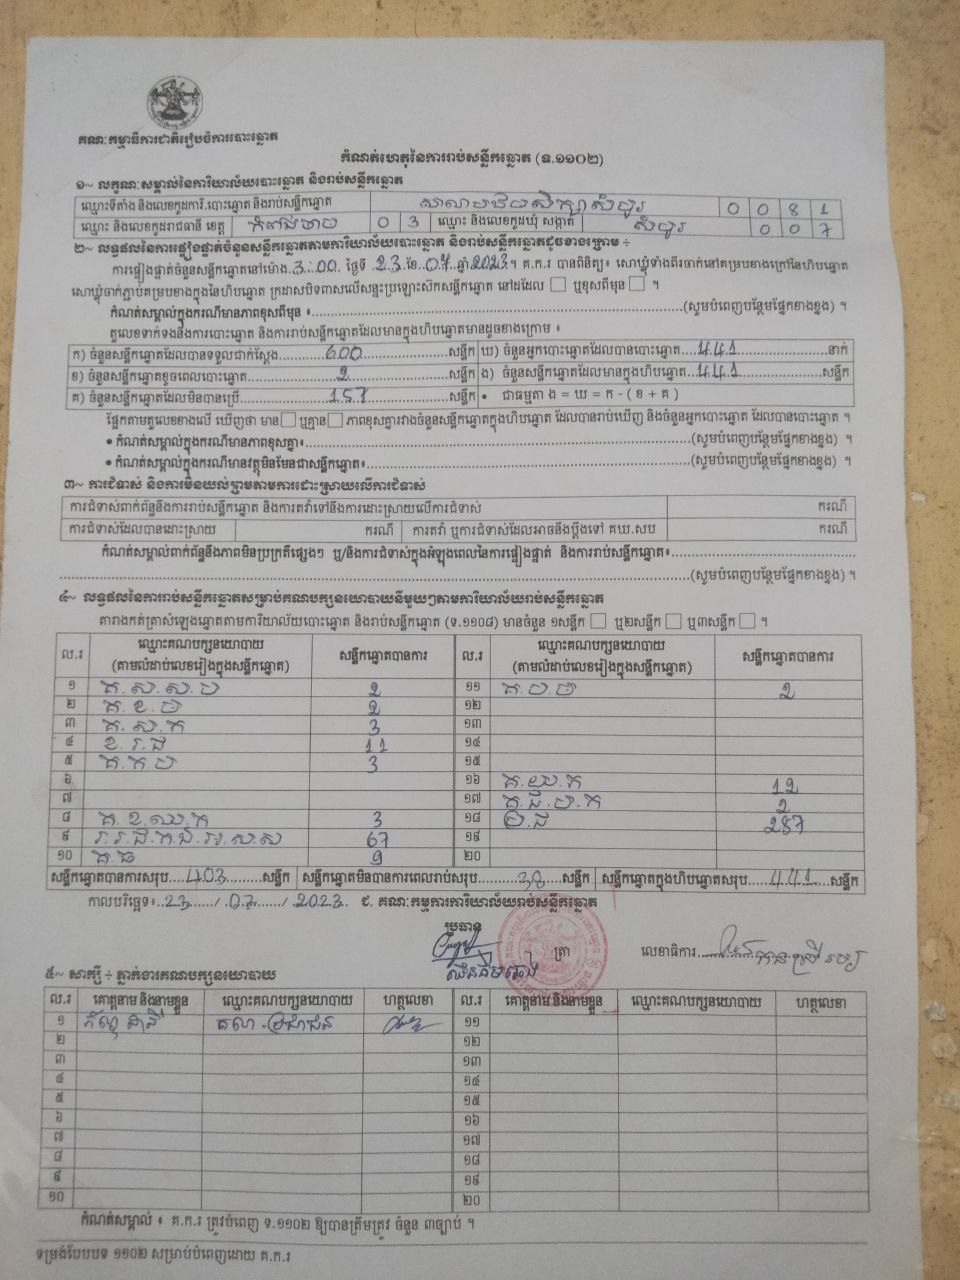 គណៈកម្មាធិការជាតិរៀបចំការបោះឆ្នោត
កំណត់ហេតុនៃការរាប់សន្លឹកឆ្នោត (ទ.១១០២)
១~ លក្ខណៈសម្គាល់នៃការិយាល័យបោះឆ្នោត និងរាប់សន្លឹកឆ្នោត
ឈ្មោះទីតាំង និងលេខកូដការិ.បោះឆ្នោត និងរាប់សន្លឹកឆ្នោត សាលាបឋមសិក្សាសំបូរ 0 0 8 1
ឈ្មោះ និងលេខកូដរាជធានី ខេត្ត កំពង់ចាម 0 3 ឈ្មោះ និងលេខកូដឃុំ សង្កាត់ សំបូរ 0 0 7
២~ លទ្ធផលនៃការផ្ទៀងផ្ទាត់ចំនួនសន្លឹកឆ្នោតតាមការិយាល័យបោះឆ្នោត និងរាប់សន្លឹកឆ្នោតដូចខាងក្រោម ÷
ការផ្ទៀងផ្ទាត់ចំនួនសន្លឹកឆ្នោតនៅម៉ោង 3:00 ថ្ងៃទី 23 ខែ 07 ឆ្នាំ 2023 ។ គ.ក.រ បានពិនិត្យ៖ សោឃ្មុំទាំងពីរចាក់នៅគម្របខាងក្រៅនៃហិបឆ្នោត
សោឃ្មុំចាក់ភ្ជាប់គម្របខាងក្នុងនៃហិបឆ្នោត ក្រដាសបិទពាសលើសន្ទះប្រឡោះស៊កសន្លឹកឆ្នោត នៅដដែល ឬខុសពីមុន ។
កំណត់សម្គាល់ក្នុងករណីមានភាពខុសពីមុន ៖ (សូមបំពេញបន្ថែមផ្នែកខាងខ្នង) ។
តួលេខទាក់ទងនឹងការបោះឆ្នោត និងការរាប់សន្លឹកឆ្នោតដែលមានក្នុងហិបឆ្នោតមានដូចខាងក្រោម ៖
ក) ចំនួនសន្លឹកឆ្នោតដែលបានទទួលជាក់ស្តែង 600 សន្លឹក ឃ) ចំនួនអ្នកបោះឆ្នោតដែលបានបោះឆ្នោត 441 នាក់
ខ) ចំនួនសន្លឹកឆ្នោតខូចពេលបោះឆ្នោត 2 សន្លឹក ង) ចំនួនសន្លឹកឆ្នោតដែលមានក្នុងហិបឆ្នោត 441 សន្លឹក
គ) ចំនួនសន្លឹកឆ្នោតដែលមិនបានប្រើ 157 សន្លឹក • ជាធម្មតា ង = ឃ = ក - ( ខ + គ )
ផ្អែកតាមតួលេខខាងលើ ឃើញថា មាន ឬគ្មាន ភាពខុសគ្នារវាងចំនួនសន្លឹកឆ្នោតក្នុងហិបឆ្នោត ដែលបានរាប់ឃើញ និងចំនួនអ្នកបោះឆ្នោត ដែលបានបោះឆ្នោត ។
• កំណត់សម្គាល់ក្នុងករណីមានភាពខុសគ្នា៖ (សូមបំពេញបន្ថែមផ្នែកខាងខ្នង) ។
• កំណត់សម្គាល់ក្នុងករណីមានវត្ថុមិនមែនជាសន្លឹកឆ្នោត៖ (សូមបំពេញបន្ថែមផ្នែកខាងខ្នង) ។
៣~ ការជំទាស់ និងការមិនយល់ព្រមតាមការដោះស្រាយលើការជំទាស់
ការជំទាស់ពាក់ព័ន្ធនឹងការរាប់សន្លឹកឆ្នោត និងការតវ៉ាទៅនឹងការដោះស្រាយលើការជំទាស់ ករណី
ការជំទាស់ដែលបានដោះស្រាយ ករណី ការតវ៉ា ឬការជំទាស់ដែលអាចនឹងប្តឹងទៅ គឃ.សប ករណី
កំណត់សម្គាល់ពាក់ព័ន្ធនឹងភាពមិនប្រក្រតីផ្សេងៗ ឬ/និងការជំទាស់ក្នុងអំឡុងពេលនៃការផ្ទៀងផ្ទាត់ និងការរាប់សន្លឹកឆ្នោត៖
(សូមបំពេញបន្ថែមផ្នែកខាងខ្នង) ។
៤~ លទ្ធផលនៃការរាប់សន្លឹកឆ្នោតសម្រាប់គណបក្សនយោបាយនីមួយៗតាមការិយាល័យរាប់សន្លឹកឆ្នោត
តារាងកត់ត្រាសំឡេងឆ្នោតតាមការិយាល័យបោះឆ្នោត និងរាប់សន្លឹកឆ្នោត (ទ.១១០៨) មានចំនួន ១សន្លឹក ឬ២សន្លឹក ឬ៣សន្លឹក ។
ល.រ ឈ្មោះគណបក្សនយោបាយ (តាមលំដាប់លេខរៀងក្នុងសន្លឹកឆ្នោត) សន្លឹកឆ្នោតបានការ ល.រ ឈ្មោះគណបក្សនយោបាយ (តាមលំដាប់លេខរៀងក្នុងសន្លឹកឆ្នោត) សន្លឹកឆ្នោតបានការ
១ គ.ស.ស.ប 2 ១១ គ.ប.ច 2
២ គ.ខ.ច 2 ១២
៣ គ.ស.ក 3 ១៣
៤ ខ.រ.ជ 11 ១៤
៥ គ.ក.ប 3 ១៥
៦ ១៦ គ.យ.ក 12
៧ ១៧ គ.ជ.ប.ក 2
៨ គ.ខ.ឈ.ក 3 ១៨ ប.ជ 287
៩ 67 ១៩
១០ គ.ធ 9 ២០
សន្លឹកឆ្នោតបានការសរុប 403 សន្លឹក សន្លឹកឆ្នោតមិនបានការពេលរាប់សរុប 38 សន្លឹក សន្លឹកឆ្នោតក្នុងហិបឆ្នោតសរុប 441 សន្លឹក
កាលបរិច្ឆេទ៖ 23 / 07 / 2023 ជ. គណៈកម្មការការិយាល័យរាប់សន្លឹកឆ្នោត
ប្រធាន ត្រា លេខាធិការ
៥~ សាក្សី ÷ ភ្នាក់ងារគណបក្សនយោបាយ
ល.រ គោត្តនាម និងនាមខ្លួន ឈ្មោះគណបក្សនយោបាយ ហត្ថលេខា ល.រ គោត្តនាម និងនាមខ្លួន ឈ្មោះគណបក្សនយោបាយ ហត្ថលេខា
១ ១១
២ ១២
៣ ១៣
៤ ១៤
៥ ១៥
៦ ១៦
៧ ១៧
៨ ១៨
៩ ១៩
១០ ២០
កំណត់សម្គាល់ ៖ គ.ក.រ ត្រូវបំពេញ ទ.១១០២ ឱ្យបានត្រឹមត្រូវ ចំនួន ៣ច្បាប់ ។
ទម្រង់បែបបទ ១១០២ សម្រាប់បំពេញដោយ គ.ក.រ